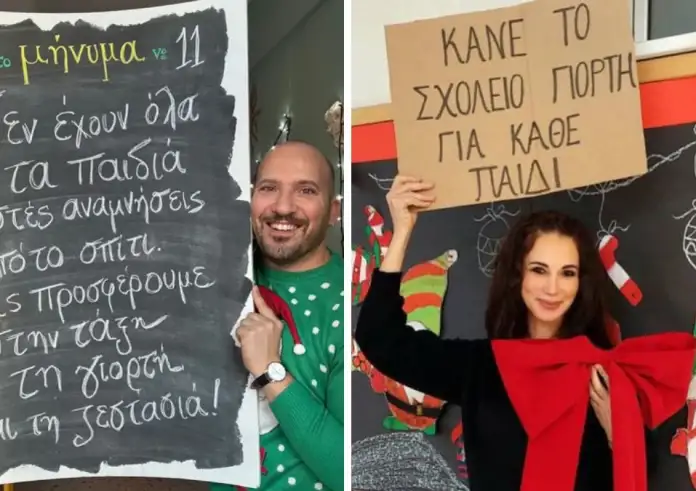 το μήνυμα νο 11
εν έχουν όλα
τα παιδιά
στές αναμνήσεις
πό το σπίτι.
ς προσφέρουμε
την τάξη
τη γιορτή
αι τη ζεστασιά!
ΚΑΝΕ ΤΟ
ΣΧΟΛΕΙΟ ΓΙΟΡΤΗ
ΓΙΑ ΚΑΘΕ
ΠΑΙΔΙ